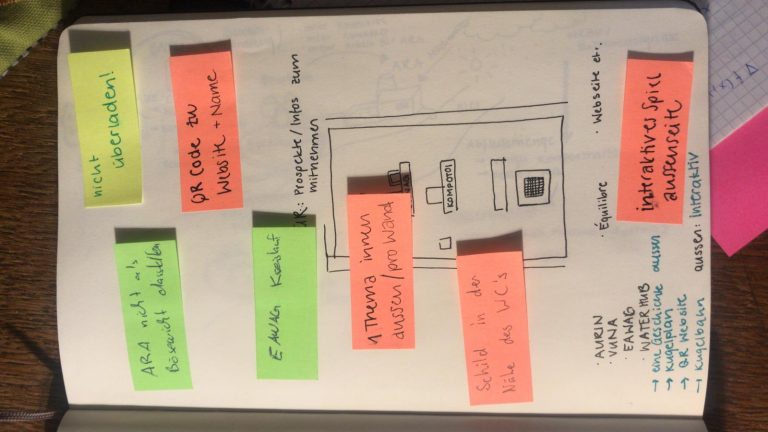 nicht
überladen!
QR Code zu
Website + Name
ARA nicht als
Bösewicht darstellen
EAWAG Kreislauf
Prospekte/Infos zum
mitnehmen
1 Thema innen
aussen/pro Wand
KOMPOTOI
Schild in der
Nähe des WC's
· AURIN
· VUNA
· EAWAG
· Équilibre
· Webseite etc.
WATER HUB
→ eine Geschichte aussen
→ Kugelplan
→ QR Website
→ Kugelbahn
aussen: Interaktiv
interaktives Spiel
aussenseite